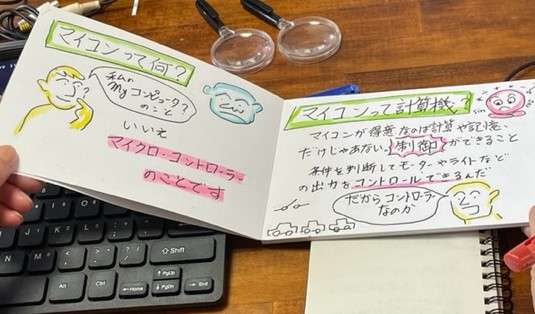 マイコンって何?
私の
Myコンピュータ?
のこと
いいえ
マイクロ・コントローラー
のことです
マイコンって計算機?
マイコンが得意なのは計算や記憶、
だけじゃあない。制御ができること
条件を判断してモーターやライトなど
の出力をコントロールできるんだ
だからコントローラー
なのか
Shift
PgUp
Home
PgDn
End
Alt
Ctrl